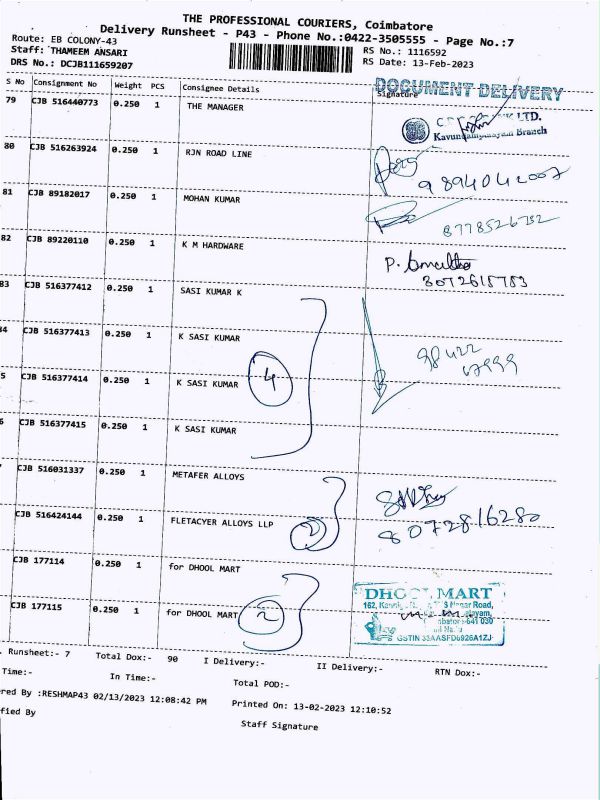 THE PROFESSIONAL COURIERS, Coimbatore
Delivery Runsheet - P43 - Phone No.:0422-3505555 - Page No.:7
Route: EB COLONY-43
Staff: THAMEEM ANSARI
DRS No.: DCJB111659207
RS No.: 1116592
RS Date: 13-Feb-2023
S No Consignment No Weight PCS Consignee Details Signature
DOCUMENT DELIVERY
79 CJB 516440773 0.250 1 THE MANAGER
LTD.
Kavundampalayam Branch
80 CJB 516263924 0.250 1 RJN ROAD LINE
9894042007
81 CJB 89182017 0.250 1 MOHAN KUMAR
8778526732
82 CJB 89220110 0.250 1 K M HARDWARE
P.
8072618783
83 CJB 516377412 0.250 1 SASI KUMAR K
34 CJB 516377413 0.250 1 K SASI KUMAR
98422
67999
5 CJB 516377414 0.250 1 K SASI KUMAR
4
CJB 516377415 0.250 1 K SASI KUMAR
CJB 516031337 0.250 1 METAFER ALLOYS
CJB 516424144 0.250 1 FLETACYER ALLOYS LLP
2
8072816280
CJB 177114 0.250 1 for DHOOL MART
CJB 177115 0.250 1 for DHOOL MART
2
DHOOL MART
162, Nagar Road,
641 030
GSTIN 33AASFD6926A1ZJ
. Runsheet:- 7 Total Dox:- 90 I Delivery:- II Delivery:- RTN Dox:-
Time:- In Time:- Total POD:-
red By :RESHMAP43 02/13/2023 12:08:42 PM Printed On: 13-02-2023 12:10:52
fied By Staff Signature